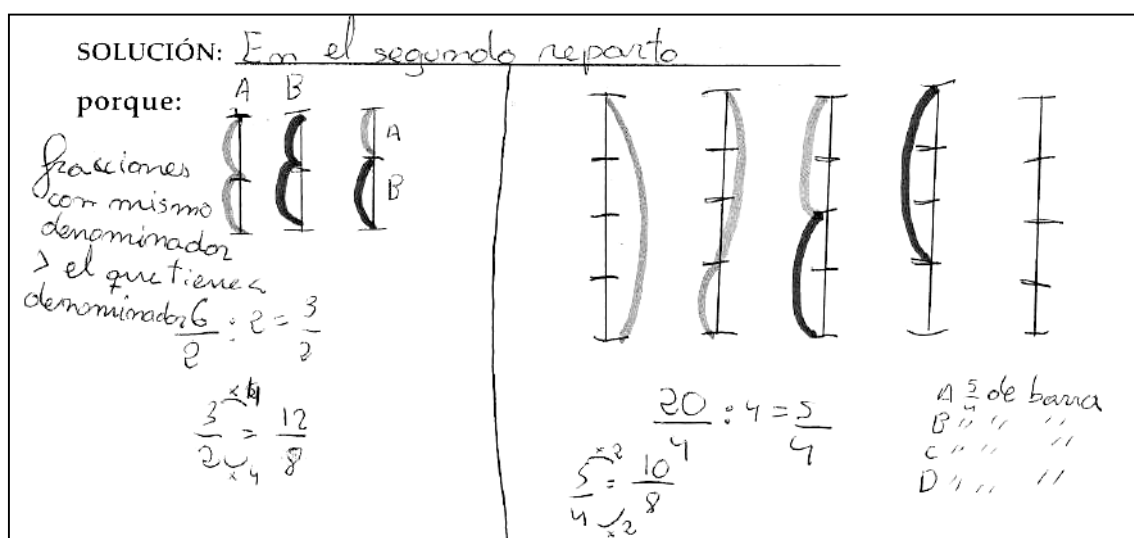 SOLUCIÓN: En el segundo reparto
porque:
A B
A
B
fracciones
con mismo
denominador
> el que tiene <
denominador
6/2 : 2 = 3/2
x4
3/2 = 12/8
x4
20/4 : 4 = 5/4
x2
5/4 = 10/8
x2
A 5/4 de barra
B " " "
C " " "
D " " "